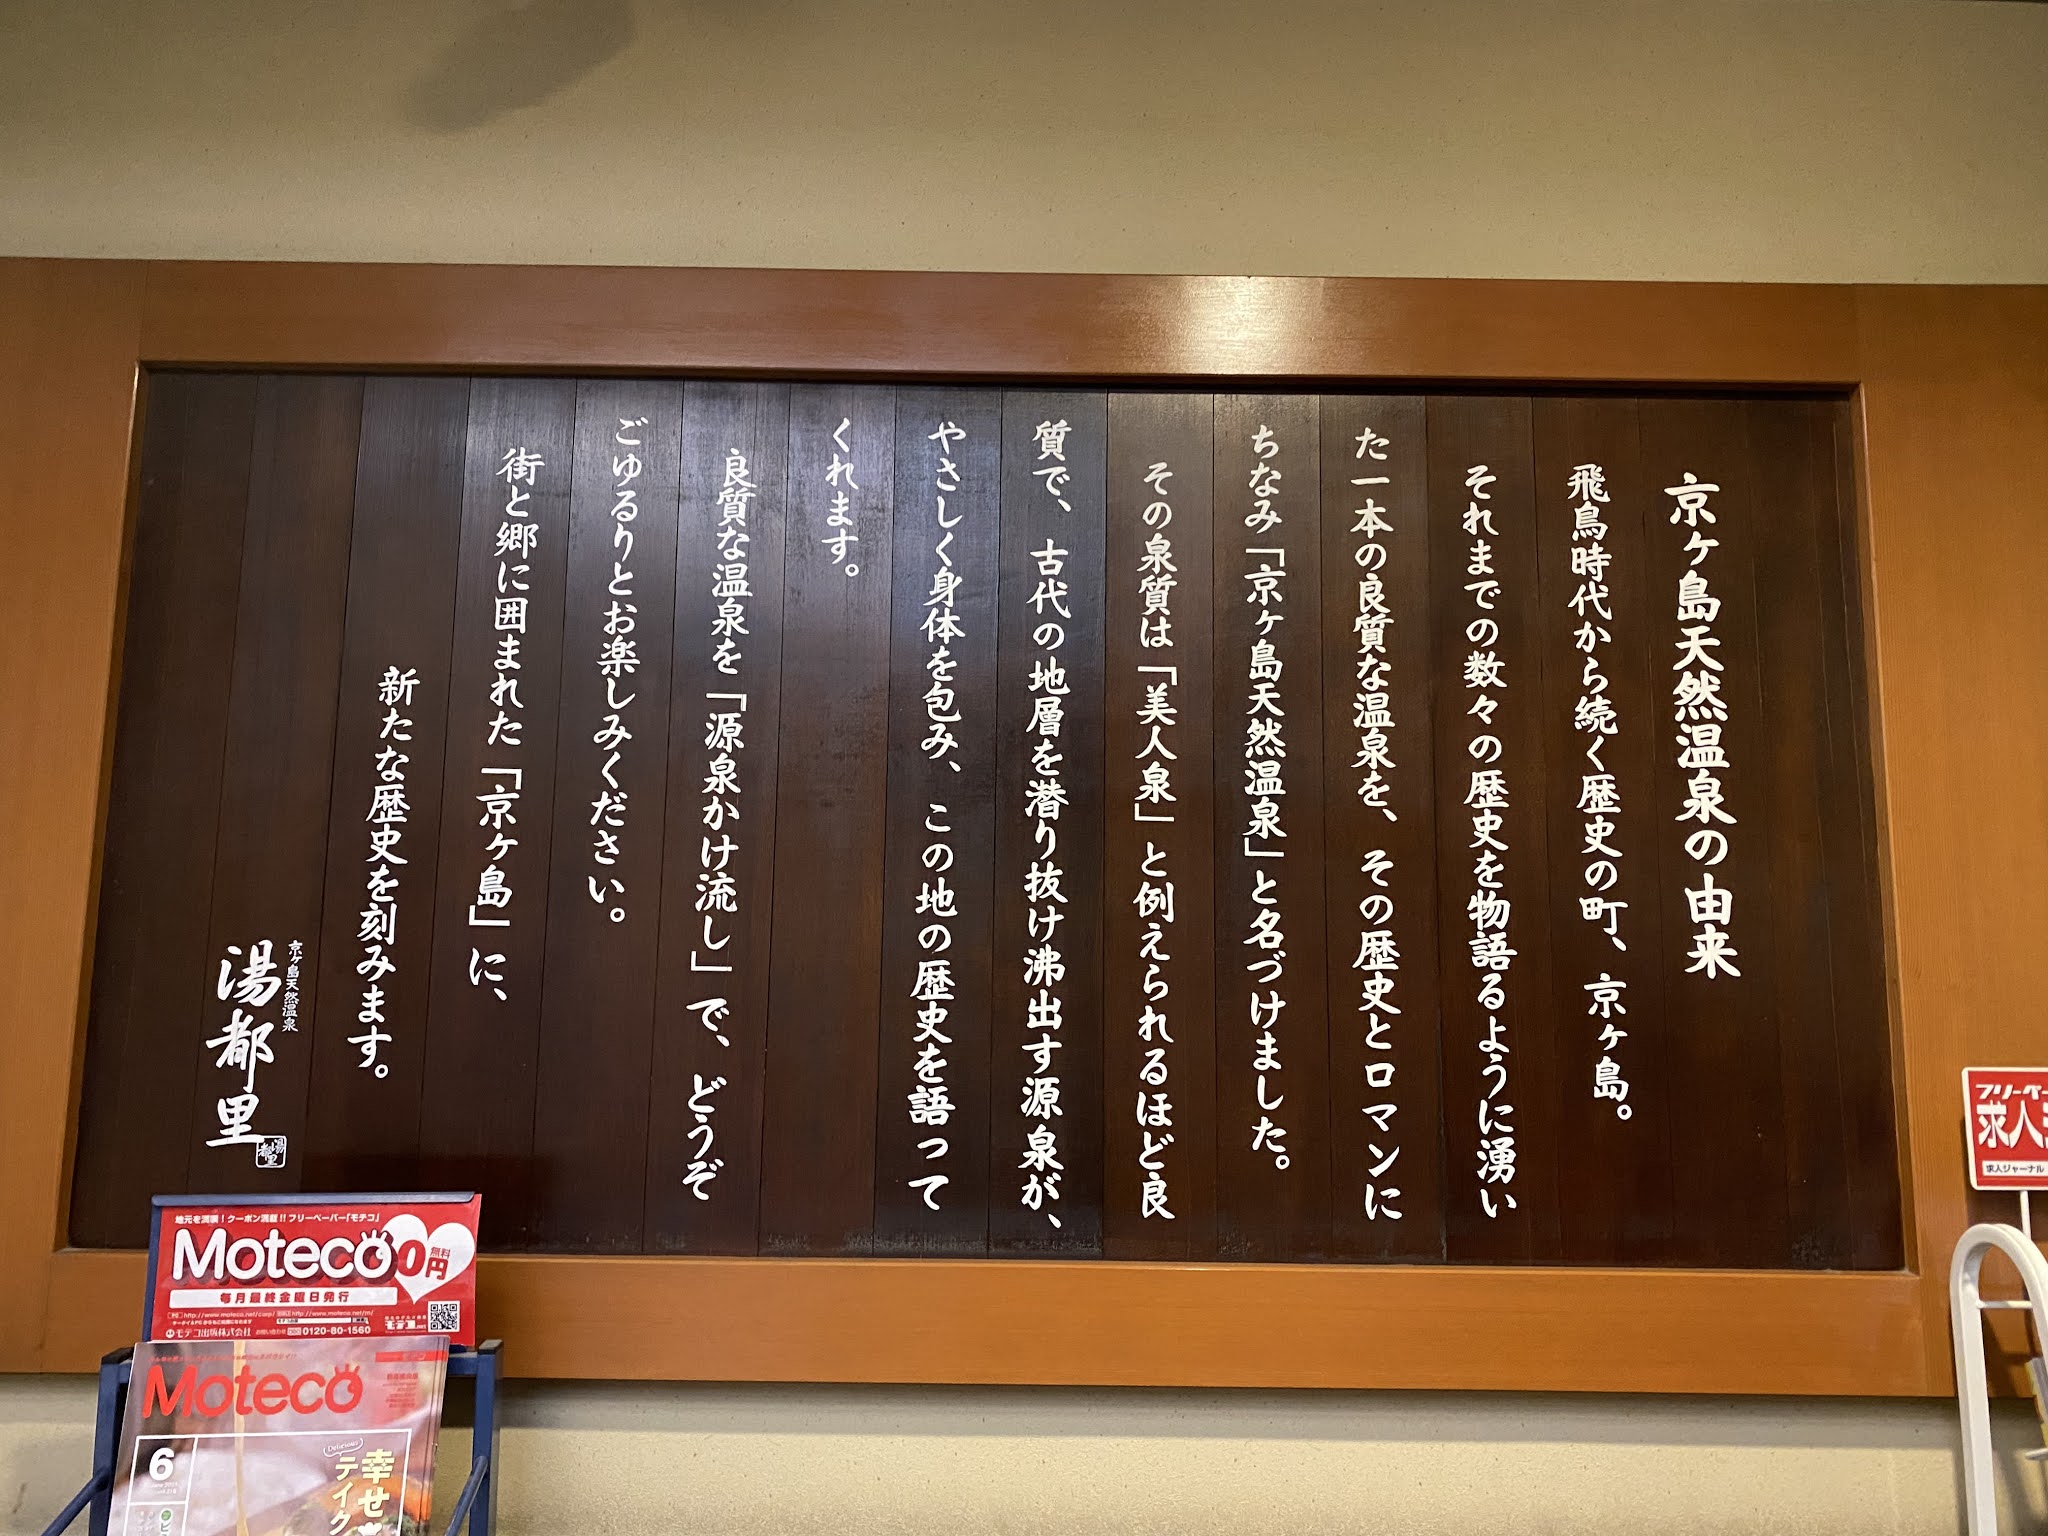 京ヶ島天然温泉の由来
飛鳥時代から続く歴史の町、京ヶ島。
それまでの数々の歴史を物語るように湧い
た一本の良質な温泉を、その歴史とロマンに
ちなみ「京ヶ島天然温泉」と名づけました。
その泉質は「美人泉」と例えられるほど良
質で、古代の地層を潜り抜け沸出す源泉が、
やさしく身体を包み、この地の歴史を語って
くれます。
良質な温泉を「源泉かけ流し」で、どうぞ
ごゆるりとお楽しみください。
街と郷に囲まれた「京ヶ島」に、
新たな歴史を刻みます。
京ヶ島天然温泉
湯都里
湯都里
地元を満喫!クーポン満載!!フリーペーパー「モテコ」
Moteco 0円
無料
毎月最終金曜日発行
http://www.moteco.net/corp/ http://www.moteco.net/m/
モテコ出版株式会社 お問い合わせ 0120-80-1560
Moteco
6
Delicious
幸せ
テイク
フリーペー
求人
求人ジャーナル